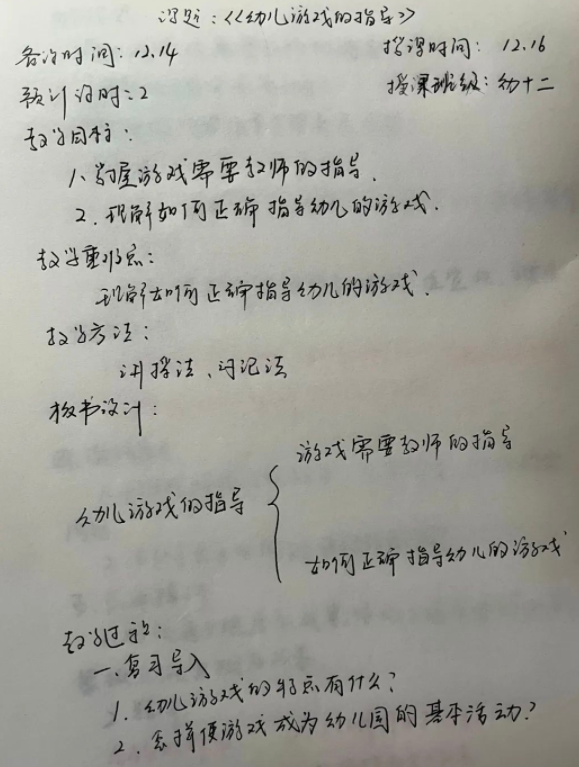 课题：《幼儿游戏的指导》
备课时间：12.14 授课时间：12.16
预计课时：2 授课班级：幼十二
教学目标：
1、掌握游戏需要教师的指导.
2、理解如何正确指导幼儿的游戏.
教学重难点：
理解如何正确指导幼儿的游戏.
教学方法：
讲授法、讨论法
板书设计：
游戏需要教师的指导
幼儿游戏的指导
如何正确指导幼儿的游戏
教学过程：
一.复习导入
1.幼儿游戏的特点有什么？
2.怎样使游戏成为幼儿园的基本活动？